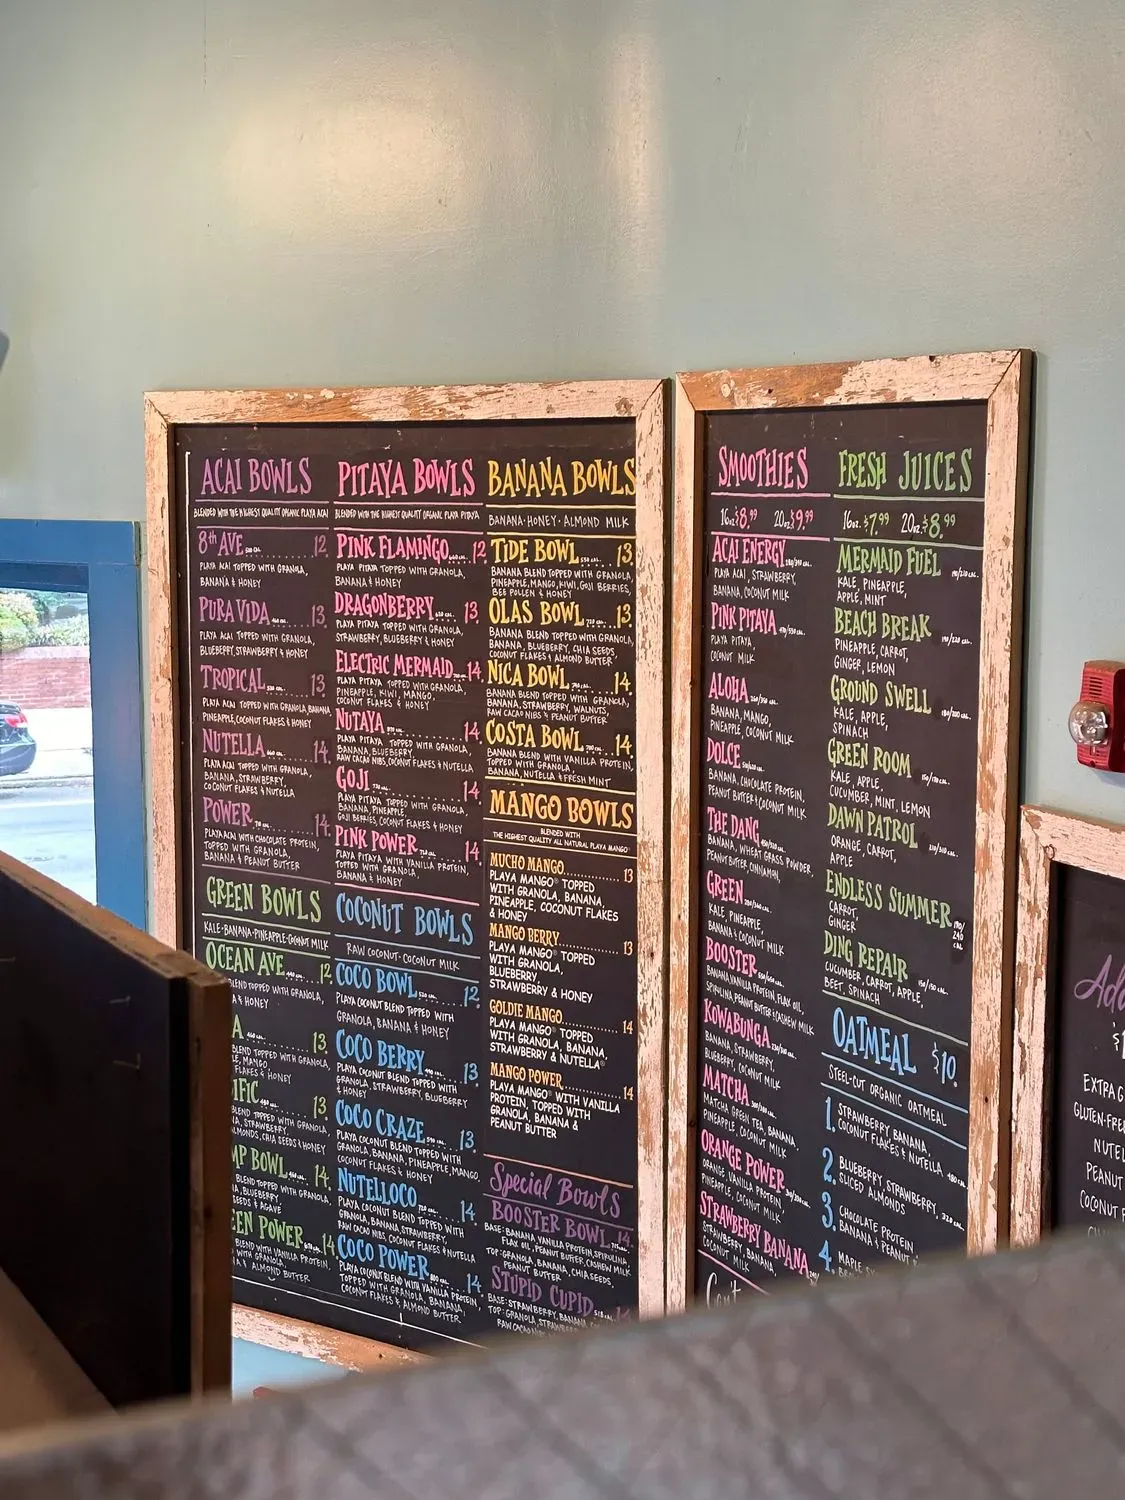 ACAI BOWLS
BLENDED WITH THE HIGHEST QUALITY ORGANIC PLAYA ACAI
8th AVE 12
PLAYA ACAI TOPPED WITH GRANOLA,
BANANA & HONEY
PURA VIDA 13
PLAYA ACAI TOPPED WITH GRANOLA,
BLUEBERRY, STRAWBERRY & HONEY
TROPICAL 13
PLAYA ACAI TOPPED WITH GRANOLA, BANANA,
PINEAPPLE, COCONUT FLAKES & HONEY
NUTELLA 14
PLAYA ACAI TOPPED WITH GRANOLA,
BANANA, STRAWBERRY
COCONUT FLAKES & NUTELLA
POWER 14
PLAYA ACAI WITH CHOCOLATE PROTEIN,
TOPPED WITH GRANOLA,
BANANA & PEANUT BUTTER
GREEN BOWLS
KALE·BANANA·PINEAPPLE·COCONUT MILK
OCEAN AVE 12
LEND TOPPED WITH GRANOLA,
A & HONEY
A 13
BLEND TOPPED WITH GRANOLA,
MANGO
FLAKES & HONEY
IFIC 13
BLEND TOPPED WITH GRANOLA,
STRAWBERRY,
MONDS, CHIA SEEDS & HONEY
MP BOWL 14
BLEND TOPPED WITH GRANOLA,
BLUEBERRY
SEEDS & AGAVE
EEN POWER 14
BLEND WITH VANILLA PROTEIN,
WITH GRANOLA,
& ALMOND BUTTER
PITAYA BOWLS
BLENDED WITH THE HIGHEST QUALITY ORGANIC PLAYA PITAYA
PINK FLAMINGO 12
PLAYA PITAYA TOPPED WITH GRANOLA,
BANANA & HONEY
DRAGONBERRY 13
PLAYA PITAYA TOPPED WITH GRANOLA,
STRAWBERRY, BLUEBERRY & HONEY
ELECTRIC MERMAID 14
PLAYA PITAYA TOPPED WITH GRANOLA,
PINEAPPLE, KIWI, MANGO,
COCONUT FLAKES & HONEY
NUTAYA 14
PLAYA PITAYA TOPPED WITH GRANOLA,
BANANA, BLUEBERRY,
RAW CACAO NIBS, COCONUT FLAKES & NUTELLA
GOJI 14
PLAYA PITAYA TOPPED WITH GRANOLA,
BANANA, PINEAPPLE,
GOJI BERRIES, COCONUT FLAKES & HONEY
PINK POWER 14
PLAYA PITAYA WITH VANILLA PROTEIN,
TOPPED WITH GRANOLA,
BANANA & HONEY
COCONUT BOWLS
RAW COCONUT·COCONUT MILK
COCO BOWL 12
PLAYA COCONUT BLEND TOPPED WITH
GRANOLA, BANANA & HONEY
COCO BERRY 13
PLAYA COCONUT BLEND TOPPED WITH
GRANOLA, STRAWBERRY, BLUEBERRY
& HONEY
COCO CRAZE 13
PLAYA COCONUT BLEND TOPPED WITH
GRANOLA, BANANA, PINEAPPLE, MANGO,
COCONUT FLAKES & HONEY
NUTELLOCO 14
PLAYA COCONUT BLEND TOPPED WITH
GRANOLA, BANANA, STRAWBERRY,
RAW CACAO NIBS, COCONUT FLAKES & NUTELLA
COCO POWER 14
PLAYA COCONUT BLEND WITH VANILLA PROTEIN,
TOPPED WITH GRANOLA, BANANA,
COCONUT FLAKES & ALMOND BUTTER
BANANA BOWLS
BANANA·HONEY·ALMOND MILK
TIDE BOWL 13
BANANA BLEND TOPPED WITH GRANOLA,
PINEAPPLE, MANGO, KIWI, GOJI BERRIES,
BEE POLLEN & HONEY
OLAS BOWL 13
BANANA BLEND TOPPED WITH GRANOLA,
BANANA, BLUEBERRY, CHIA SEEDS,
COCONUT FLAKES & ALMOND BUTTER
NICA BOWL 14
BANANA BLEND TOPPED WITH GRANOLA,
BANANA, STRAWBERRY, WALNUTS,
RAW CACAO NIBS & PEANUT BUTTER
COSTA BOWL 14
BANANA BLEND WITH VANILLA PROTEIN,
TOPPED WITH GRANOLA,
BANANA, NUTELLA & FRESH MINT
MANGO BOWLS
BLENDED WITH
THE HIGHEST QUALITY ALL NATURAL PLAYA MANGO
MUCHO MANGO 13
PLAYA MANGO® TOPPED
WITH GRANOLA, BANANA,
PINEAPPLE, COCONUT FLAKES
& HONEY
MANGO BERRY 13
PLAYA MANGO® TOPPED
WITH GRANOLA,
BLUEBERRY,
STRAWBERRY & HONEY
GOLDIE MANGO 14
PLAYA MANGO® TOPPED
WITH GRANOLA, BANANA,
STRAWBERRY & NUTELLA®
MANGO POWER 14
PLAYA MANGO® WITH VANILLA
PROTEIN, TOPPED WITH
GRANOLA, BANANA &
PEANUT BUTTER
Special Bowls
BOOSTER BOWL 14
BASE: BANANA, VANILLA PROTEIN, SPIRULINA,
FLAX OIL, PEANUT BUTTER, CASHEW MILK
TOP: GRANOLA, BANANA, CHIA SEEDS,
PEANUT BUTTER
STUPID CUPID
BASE: STRAWBERRY, BANANA
TOP: GRANOLA, STRAWBERRY
RAW CACAO
SMOOTHIES
16oz $8.99 20oz $9.99
ACAI ENERGY
PLAYA ACAI, STRAWBERRY,
BANANA, COCONUT MILK
PINK PITAYA
PLAYA PITAYA,
COCONUT MILK
ALOHA
BANANA, MANGO,
PINEAPPLE, COCONUT MILK
DOLCE
BANANA, CHOCOLATE PROTEIN,
PEANUT BUTTER & COCONUT MILK
THE DANG
BANANA, WHEAT GRASS POWDER,
PEANUT BUTTER, CINNAMON,
GREEN
KALE, PINEAPPLE,
BANANA & COCONUT MILK
BOOSTER
BANANA, VANILLA PROTEIN, FLAX OIL,
SPIRULINA, PEANUT BUTTER & CASHEW MILK
KOWABUNGA
BANANA, STRAWBERRY,
BLUEBERRY, COCONUT MILK
MATCHA
MATCHA GREEN TEA, BANANA,
PINEAPPLE, COCONUT MILK
ORANGE POWER
ORANGE, VANILLA PROTEIN,
PINEAPPLE, COCONUT MILK
STRAWBERRY BANANA
STRAWBERRY, BANANA,
COCONUT MILK
FRESH JUICES
16oz $7.99 20oz $8.99
MERMAID FUEL
KALE, PINEAPPLE,
APPLE, MINT
BEACH BREAK
PINEAPPLE, CARROT,
GINGER, LEMON
GROUND SWELL
KALE, APPLE,
SPINACH
GREEN ROOM
KALE, APPLE,
CUCUMBER, MINT, LEMON
DAWN PATROL
ORANGE, CARROT,
APPLE
ENDLESS SUMMER
CARROT,
GINGER
DING REPAIR
CUCUMBER, CARROT, APPLE,
BEET, SPINACH
OATMEAL $10.
STEEL-CUT ORGANIC OATMEAL
1. STRAWBERRY, BANANA,
COCONUT FLAKES & NUTELLA
2. BLUEBERRY, STRAWBERRY,
SLICED ALMONDS
3. CHOCOLATE PROTEIN,
BANANA & PEANUT
4. MAPLE
Add
EXTRA G
GLUTEN-FREE
NUTEL
PEANUT
COCONUT F